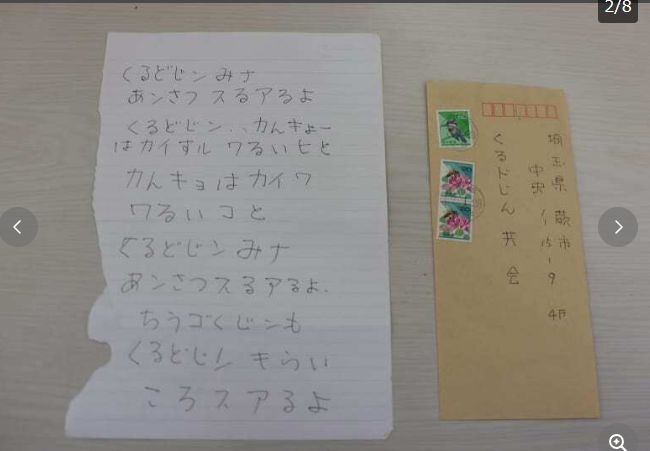 2/8
くるどじン みナ
あンさつ スるアるよ
くるどじン、、カんキょー
はカイすル ワるいヒと
カんキョはカイワ
ワるいコと
くるどジン みナ
あンさつスるアるよ.
ちうゴくじンも
くるどじン キらい
ころスアるよ
埼玉県 蕨市
中央 1-15-9 4F
くるドじん 共 会